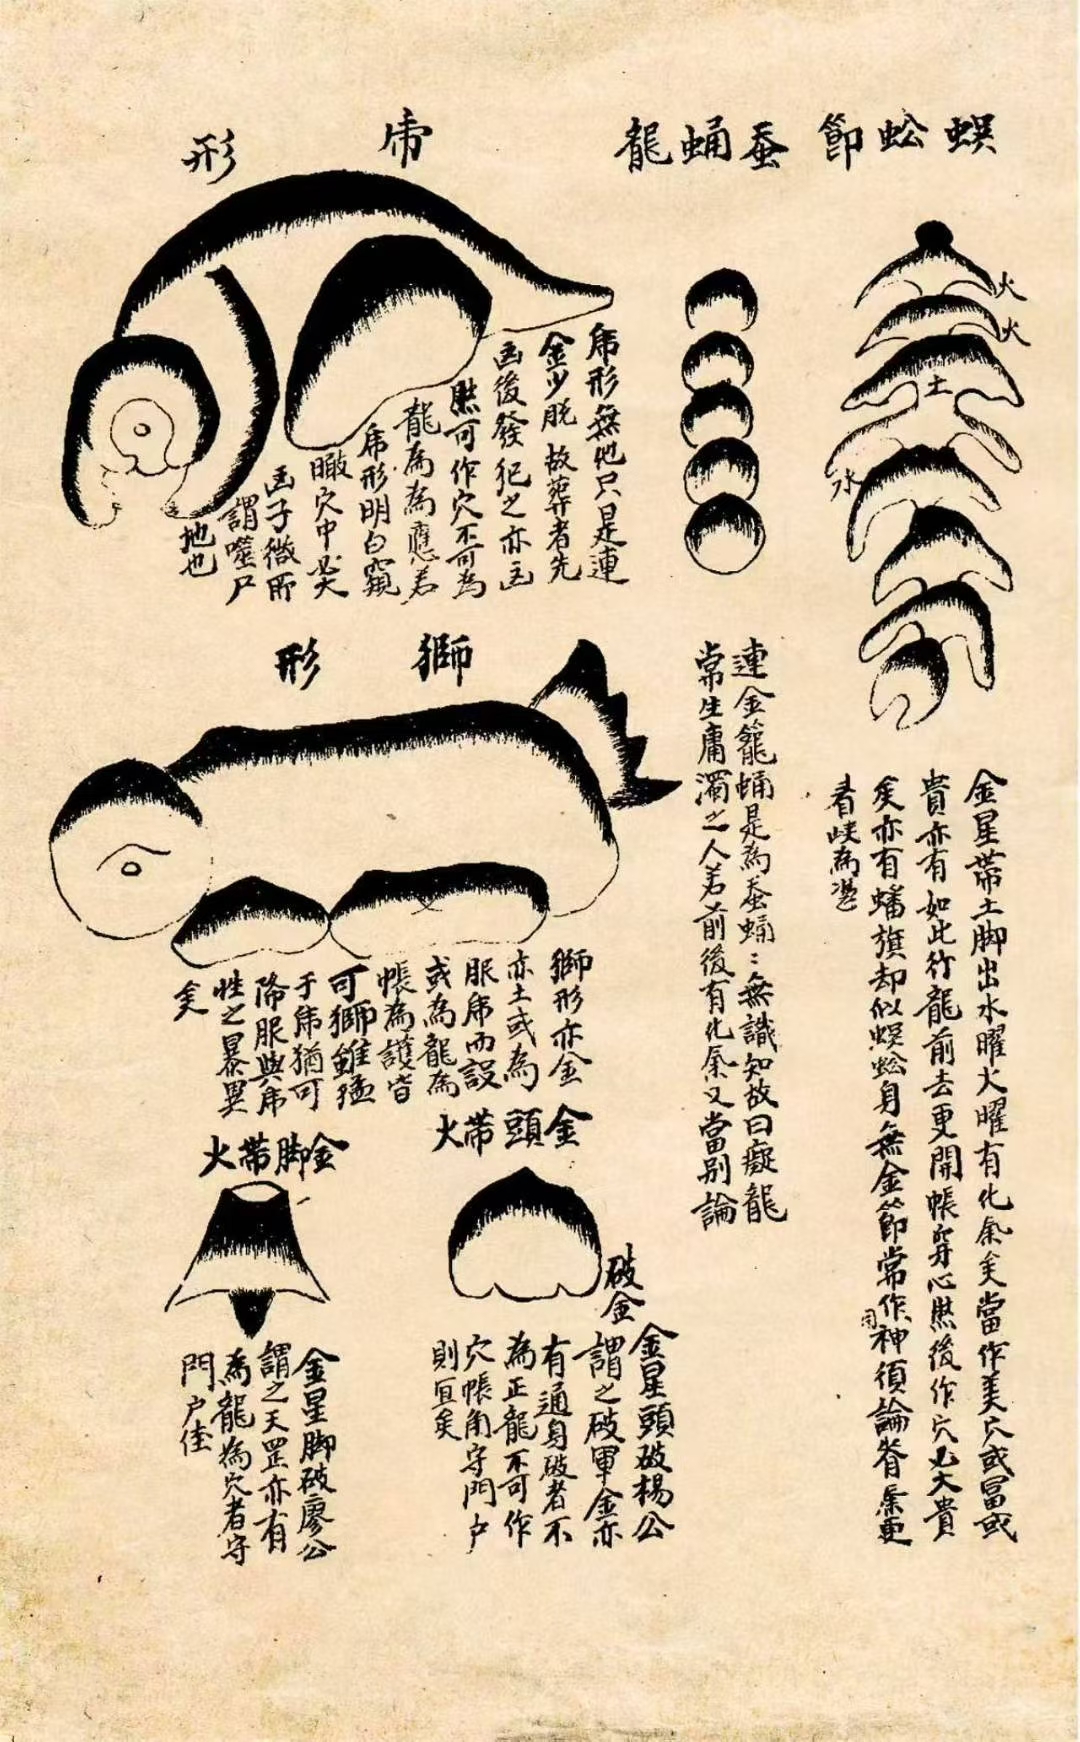 蜈蚣節
火
火
土
水
金星帶土脚出水曜火曜有化氣矣當作美穴或冨或
貴亦有如此行龍前去更開帳穿心然後作穴必大貴
矣亦有蟠旗却似蜈蚣身無金節常作神須論脊氣更
用
看峽為
蚕蛹龍
連金籠蛹是為蚕蛹〻無識知故曰癡龍
常生庸濁之人若前後有化氣又當别論
虎形
虎形無他只是連
金少脱故葬者先
凶後發犯之亦凶
然可作穴不可為
龍為為應若
虎形明白窺
瞰穴中必大
凶子微所
謂噬尸
地也
獅形
獅形亦金
亦土或為
服虎而設
或為龍為
帳為護皆
可獅雖猛
于虎猶可
降服與虎
性之暴異
矣
金頭帶火
破金
金星頭破楊公
謂之破軍金亦
有通身破者不
為正龍不可作
穴帳角守門户
則宜矣
金脚帶火
金星脚破廖公
謂之天罡亦有
為龍為穴者守
門户佳